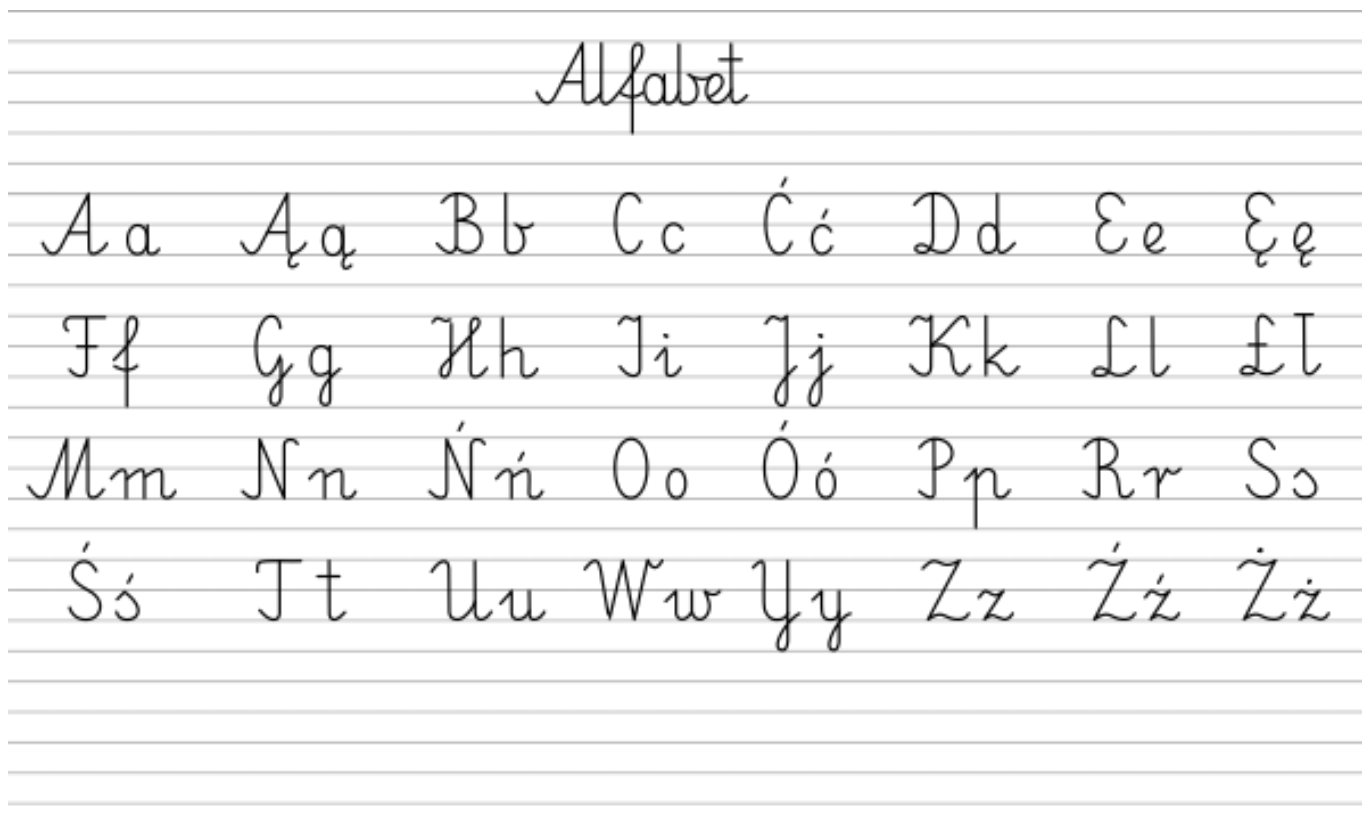 Alfabet
Aa Ąą Bb Cc Ćć Dd Ee Ęę
Ff Gg Hh Ii Jj Kk Ll Łł
Mm Nn Ńń Oo Óó Pp Rr Ss
Śś Tt Uu Ww Yy Zz Źź Żż